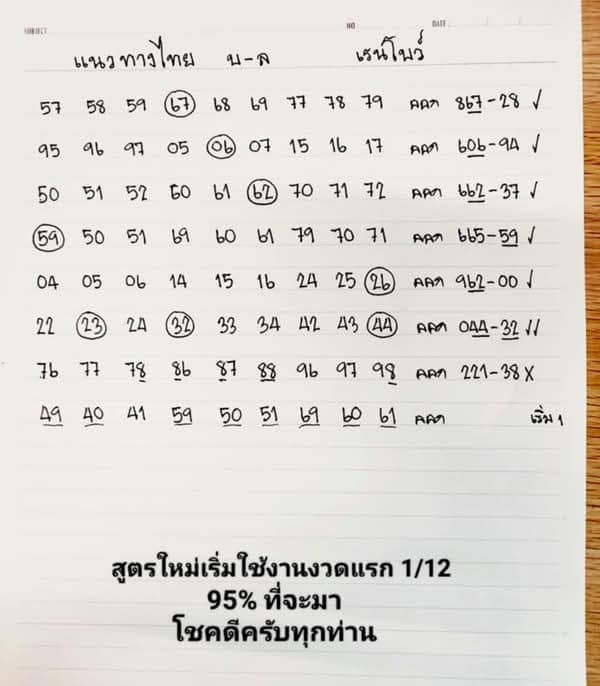 SUBJECT NO DATE : / /
แนวทางไทย บ-ล เรนโบว์
57 58 59 67 68 69 77 78 79 คคก 867-28 ✓
95 96 97 05 06 07 15 16 17 คคก 606-94 ✓
50 51 52 60 61 62 70 71 72 คคก 662-37 ✓
59 50 51 69 60 61 79 70 71 คคก 665-59 ✓
04 05 06 14 15 16 24 25 26 คคก 962-00 ✓
22 23 24 32 33 34 42 43 44 คคก 044-32 ✓✓
76 77 78 86 87 88 96 97 98 คคก 221-38 X
49 40 41 59 50 51 69 60 61 คคก เริ่ม 1
สูตรใหม่เริ่มใช้งานงวดแรก 1/12
95% ที่จะมา
โชคดีครับทุกท่าน